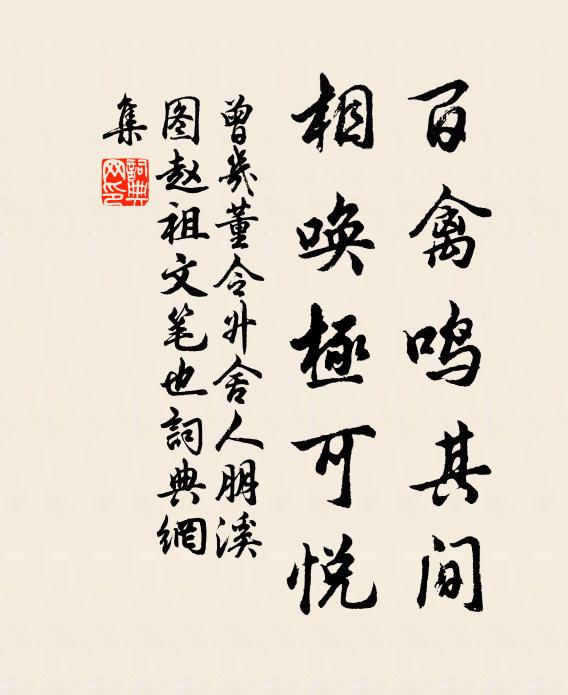 百禽鸣其间
相唤極可悦
曾㡬董令升舍人朋溪
图赵祖文笔也詞典網
集
詞典
网印